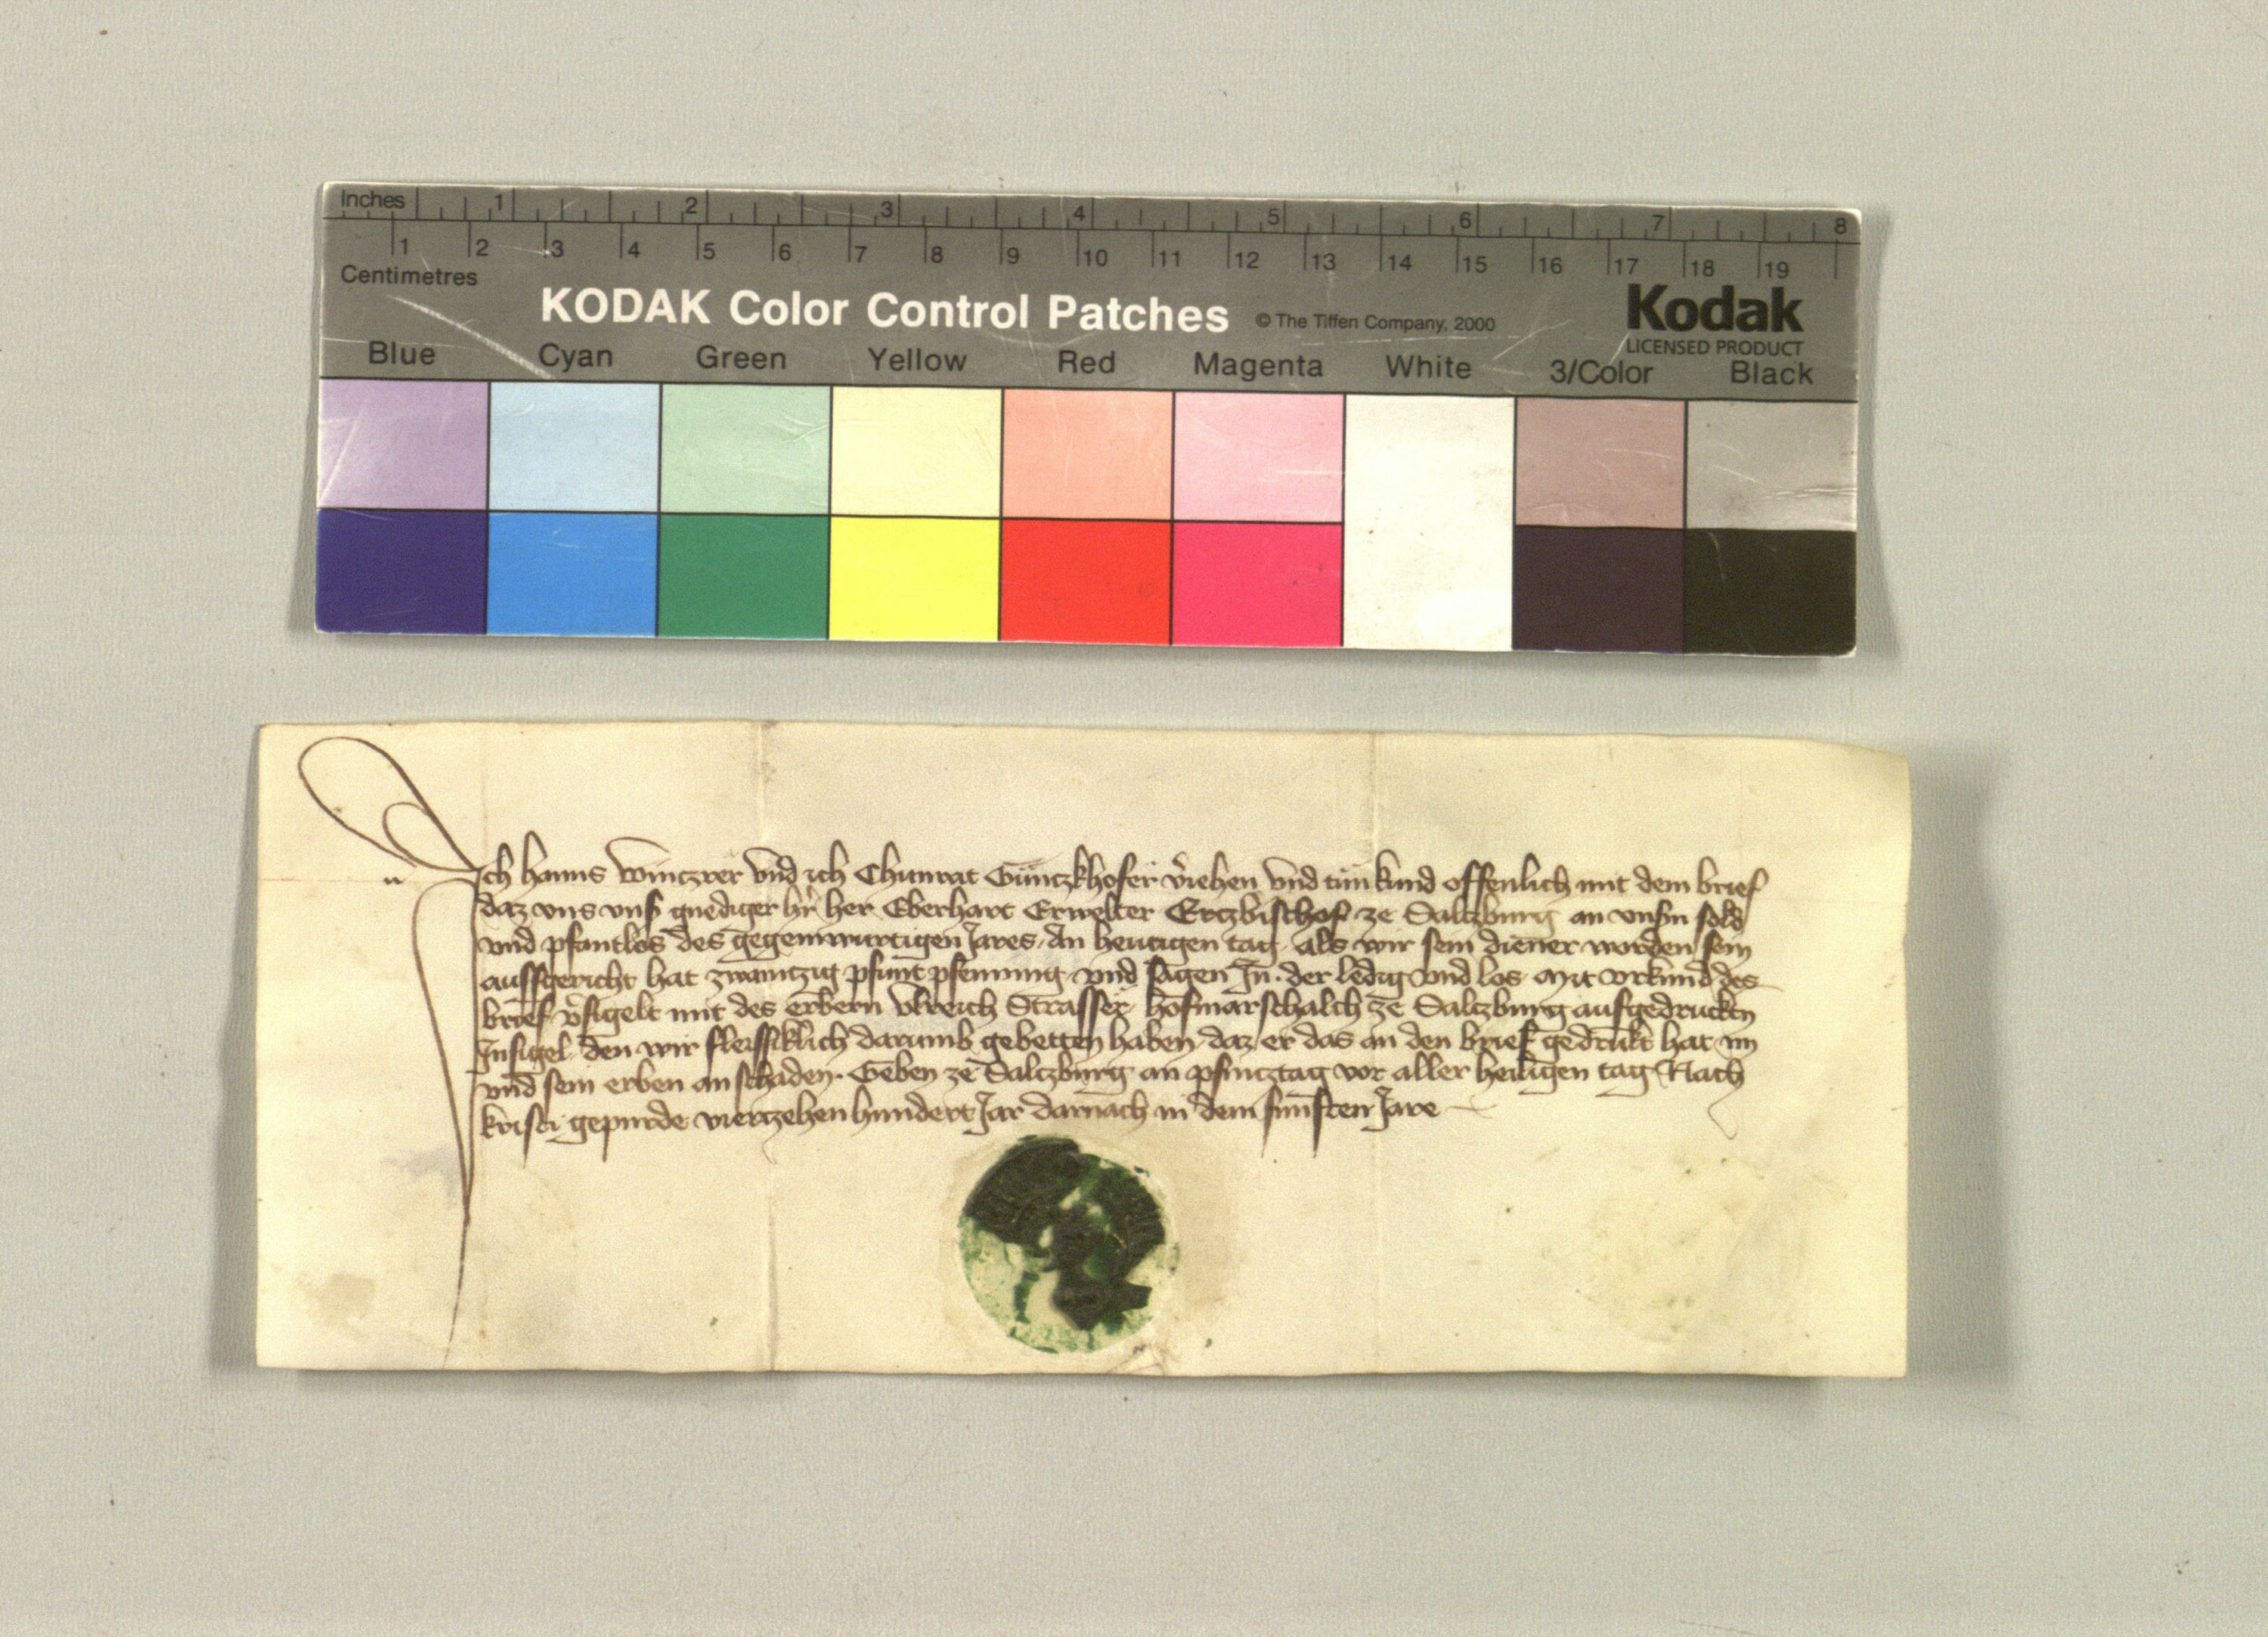 Inches 1 2 3 4 5 6 7 8
1 2 3 4 5 6 7 8 9 10 11 12 13 14 15 16 17 18 19
Centimetres
KODAK Color Control Patches © The Tiffen Company, 2000 Kodak
LICENSED PRODUCT
Blue Cyan Green Yellow Red Magenta White 3/Color Black
Ich hanns wintzrer vnd ich Chunrat Güntzkhofer v̾iehen vnd tün kund offenlich mit dem brief
daz vns vnß gnediger hr̄ her Eberhart Erwelter Ertzbischof ze Saltzburg an vnſm ſold
vnd pfantlos des gegenwurtigen Jares, An heutigen tag, als wir ſein diener worden ſein
auſſgericht hat zwaintzig pfunt pfenning vnd ſagen In. der ledig vnd los Mit vrkund des
brief v̾ſigelt mit des erbern Vlreich Straſſer hofmarſchalch ze Saltzburg aufgedruckten
Inſigel, den wir fleiſſiklich darumb gebetten haben, daz er das an den brief gedrukt hat im
vnd ſein erben an ſchaden. Geben ze Saltzburg an pfintztag vor aller heiligen tag Nach
kriſti gepurde viertzehenhundert Jar darnach in dem fünften Jare